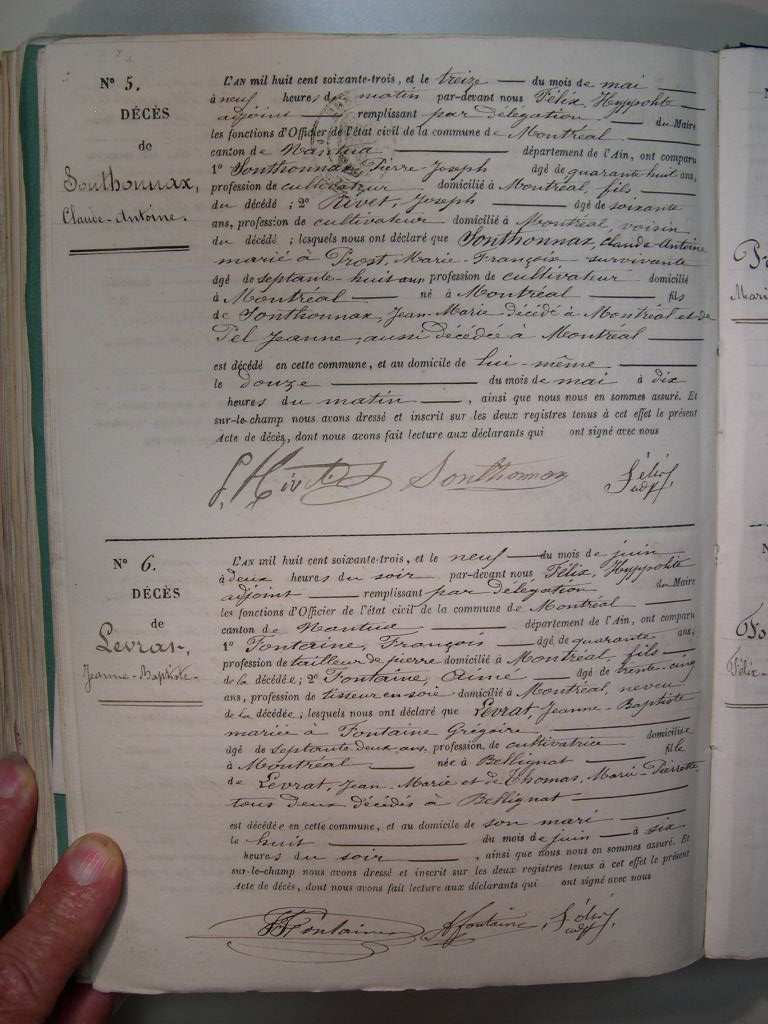 N° 5.
DÉCÈS
de
Sonthonnax,
Claude-Antoine.
L'AN mil huit cent soixante-trois, et le treize du mois de mai
à neuf heures du matin par-devant nous Félix, Hyppolite
adjoint remplissant par délégation du Maire
les fonctions d'Officier de l'état civil de la commune de Montréal
canton de Nantua département de l'Ain, ont comparu
1° Sonthonnax, Pierre-Joseph âgé de quarante huit ans,
profession de cultivateur domicilié à Montréal, fils
du décédé ; 2° Rivet, Joseph âgé de soixante
ans, profession de cultivateur domicilié à Montréal, voisin
du décédé ; lesquels nous ont déclaré que Sonthonnax, Claude Antoine
marié à Prost, Marie-François survivante
âgé de septante-huit ans profession de cultivateur domicilié
à Montréal né à Montréal fils
de Sonthonnax, Jean-Marie décédé à Montréal et de
Pel Jeanne, aussi décédée à Montréal
est décédé en cette commune, et au domicile de lui-même
le douze du mois de mai à dix
heures du matin, ainsi que nous nous en sommes assuré. Et
sur-le-champ nous avons dressé et inscrit sur les deux registres tenus à cet effet le présent
Acte de décès, dont nous avons fait lecture aux déclarants qui ont signé avec nous
Sonthonnax Félix
adj.
N° 6.
DÉCÈS
de
Levrat,
Jeanne-Baptiste.
L'AN mil huit cent soixante-trois, et le neuf du mois de juin
à deux heures du soir par-devant nous Félix, Hyppolite
adjoint remplissant par délégation du Maire
les fonctions d'Officier de l'état civil de la commune de Montréal
canton de Nantua département de l'Ain, ont comparu
1° Fontaine, François âgé de quarante ans,
profession de tailleur de pierre domicilié à Montréal, fils
de la décédée; 2° Fontaine, Aimé âgé de trente-cinq
ans, profession de tisseur en soie domicilié à Montréal, neveu
de la décédée; lesquels nous ont déclaré que Levrat, Jeanne-Baptiste
mariée à Fontaine Grégoire
âgé de septante deux ans, profession de cultivatrice domiciliée
à Montréal née à Bellignat fille
de Levrat, Jean-Marie et de Thomas, Marie-Pierrette
tous deux décédés à Bellignat
est décédée en cette commune, et au domicile de son mari
le huit du mois de juin à six
heures du soir, ainsi que nous nous en sommes assuré. Et
sur-le-champ nous avons dressé et inscrit sur les deux registres tenus à cet effet le présent
Acte de décès, dont nous avons fait lecture aux déclarants qui ont signé avec nous
Fontaine A fontaine Félix
adj.